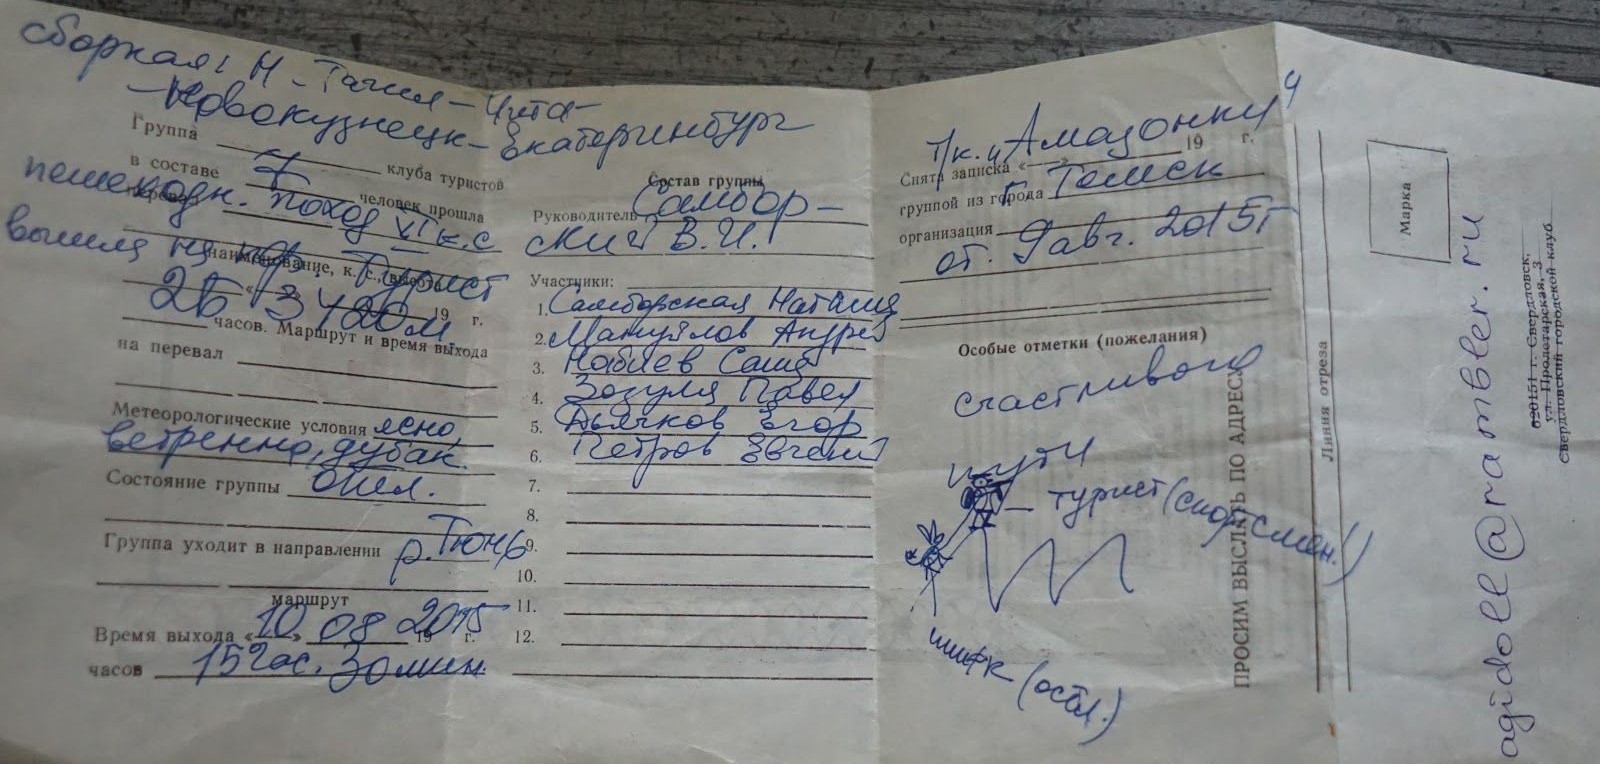 сборная: Н-Тагил-Чита-
-Новокузнецк-Екатеринбург
Группа клуба туристов
в составе 7 человек прошла
перевал
пешеходн. поход VI к.с
вышла на пер. Турист
наименование, к. с., высота
2Б 3420м
« » 19 г.
часов. Маршрут и время выхода
на перевал
Метеорологические условия ясно,
ветренно, дубак.
Состояние группы
Группа уходит в направлении
р. Тюнь
маршрут
Время выхода «10» 08 2015 19 г.
часов 15 час. 30 мин.
Состав группы
Руководитель Самбор-
ский В.И.
Участники:
1. Самборская Наташа
2. Мануйлов Андрей
3. Набиев Саша
4. Зозуля Павел
5. Дьячков Егор
6. Петров Евгений
7.
8.
9.
10.
11.
12.
т/к. „Амазонки"
Снята записка « » 19 г.
группой из города г. Томск
организация
от. 9 авг. 2015г
Особые отметки (пожелания)
счастливого
пути
— турист (спортсмен!)
(остл.)
ПРОСИМ ВЫСЛАТЬ ПО АДРЕСУ
Линия отреза
Марка
agidoll@rambler.ru
620151 г. Свердловск,
ул. Пролетарская, 3
свердловский городской клуб